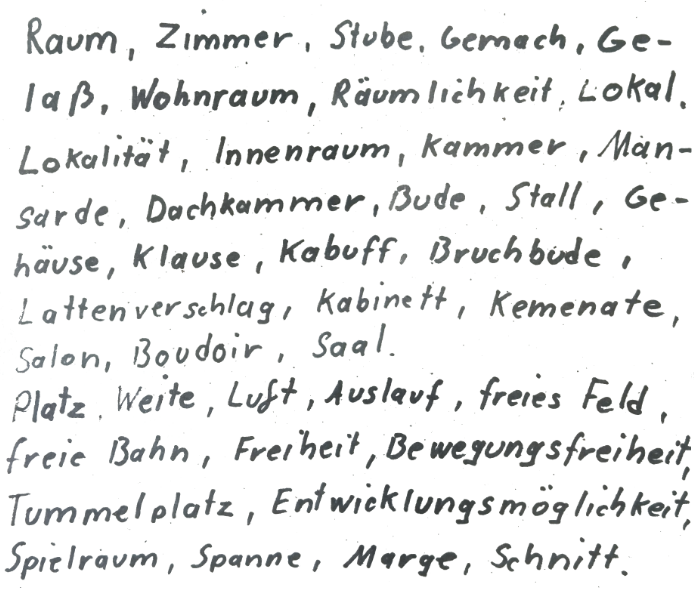 Raum, Zimmer, Stube, Gemach, Ge-
laß, Wohnraum, Räumlichkeit, Lokal,
Lokalität, Innenraum, Kammer, Man-
sarde, Dachkammer, Bude, Stall, Ge-
häuse, Klause, Kabuff, Bruchbude,
Lattenverschlag, Kabinett, Kemenate,
Salon, Boudoir, Saal.
Platz, Weite, Luft, Auslauf, freies Feld,
freie Bahn, Freiheit, Bewegungsfreiheit,
Tummelplatz, Entwicklungsmöglichkeit,
Spielraum, Spanne, Marge, Schnitt.